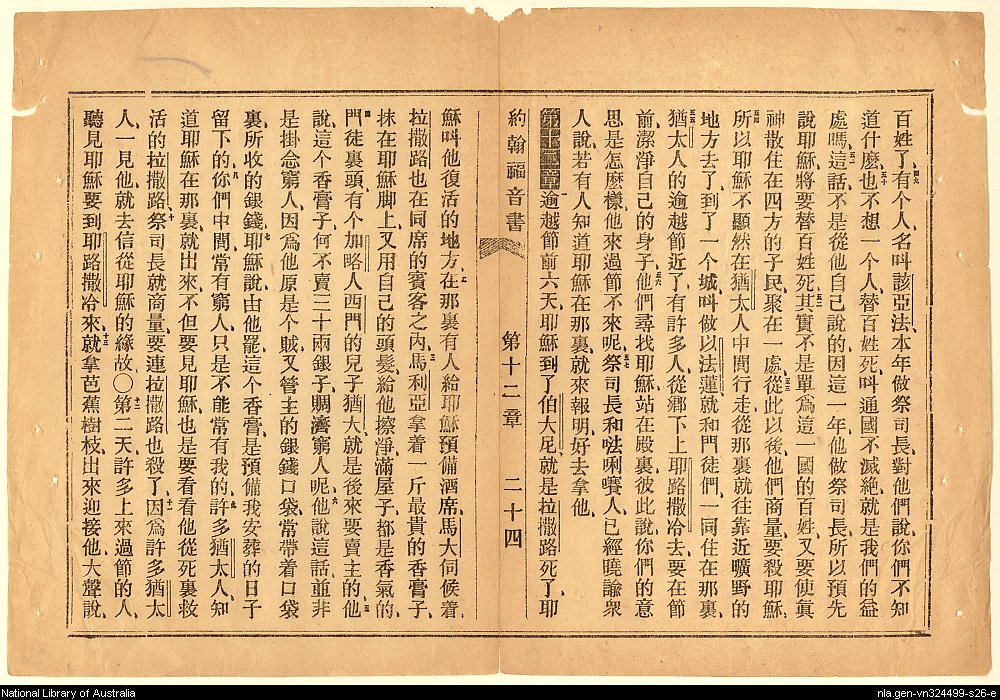 百姓了四九有个人名叫該亞法本年做祭司長對他們說你們不知
道什麽五十也不想一個人替百姓死叫通國不滅絶就是我們的益
處嗎五一這話不是從他自己說的因這一年他做祭司長所以預先
說耶穌將要替百姓死五二其實不是單爲這一國的百姓又要使
神散住在四方的子民聚在一處五三從此以後他們商量要殺耶穌
五四所以耶穌不顯然在猶太人中間行走從那裏就往靠近曠野的
地方去了到了一个城叫做以法蓮就和門徒們一同住在那裏
五五猶太人的逾越節近了有許多人從鄉下上耶路撒冷去要在節
前潔淨自己的身子五六他們尋找耶穌站在殿裏彼此說你們的意
思是怎麽樣他來過節不來呢五七祭司長和𠵽唎賽人已經曉諭衆
人說若有人知道耶穌在那裏就來報明好去拿他
第十二章一逾越節前六天耶穌到了伯大尼就是拉撒路死了耶
約翰福音書 第十二章 二十四
穌叫他復活的地方二在那裏有人給耶穌預備酒席馬大伺候着
拉撒路也在同席的賓客之內三馬利亞拿着一斤最貴的香膏子
抹在耶穌脚上又用自己的頭髮給他擦淨滿屋子都是香氣的
四門徒裏頭有个加略人西門的兒子猶大就是後來要賣主的他五
說這个香膏子何不賣三十兩銀子賙濟窮人呢六他說這話並非
是掛念窮人因爲他原是个賊又管主的銀錢口袋常帶着口袋
裏所收的銀錢七耶穌說由他罷這个香膏是預備我安葬的日子
留下的八你們中間常有窮人只是不能常有我的九許多猶太人知
道耶穌在那裏就出來不但要見耶穌也是要看看他從死裏救
活的拉撒路十祭司長就商量要連拉撒路也殺了十一因爲許多猶太
人一見他就去信從耶穌的緣故〇十二第二天許多上來過節的人
聽見耶穌要到耶路撒冷來十三就拿芭蕉樹枝出來迎接他大聲說
National Library of Australia
nla.gen-vn324499-s26-e